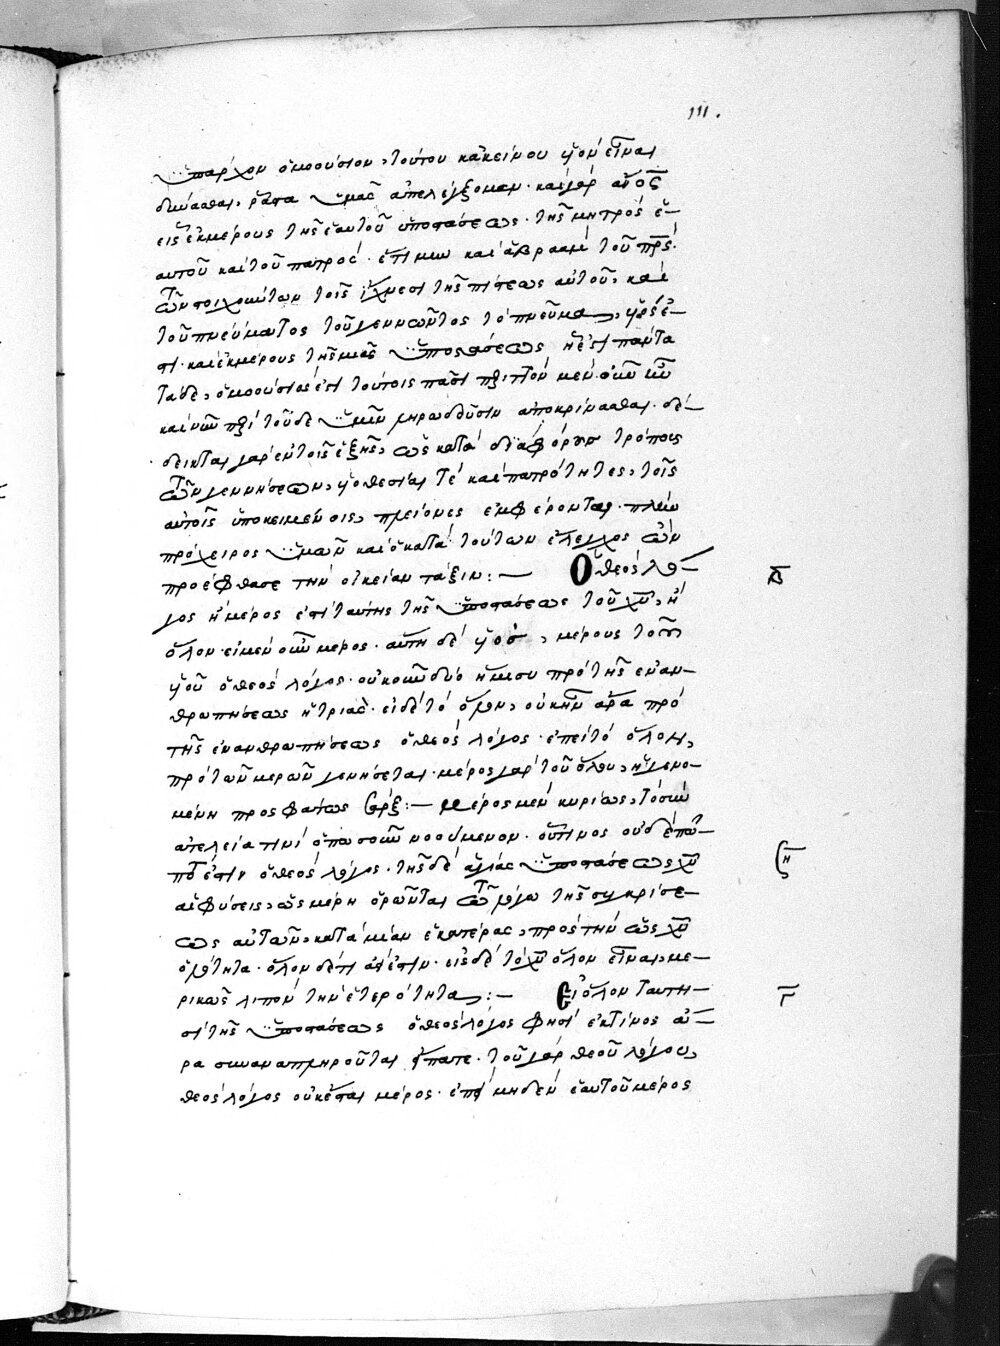 111.
ὑπάρχον ὁμοούσιον, τούτου κἀκείνου υἱὸν εἶναι
δινύασθαι, ῥᾶστα ὑμᾶς ἀπελέγξομεν. καὶ γὰρ αὐτὸς
εἷς ἐκ μέρους τῆς ἑαυτοῦ ὑποστάσεως. τῆς μητρός ἐ-
αυτοῦ καὶ τοῦ πατρός. ἔτι μὴν καὶ ἀβραὰμ τοῦ πρς.
τῶν στοιχούντων τοῖς ἴχνεσι τῆς πίστεως αὐτοῦ, καὶ
τοῦ πνεύματος τοῦ γεννῶντος τὸ πνεῦμα, υἱός ἐ-
στι. καὶ ἐκ μέρους τῆς μιᾶς ὑποστάσεως ἥ ἐστι πάντα
ταῦτα, ὁμοούσιός ἐστι τούτοις πᾶσι πλὴν μὲν οὖν
καὶ νῦν περὶ τοῦδε ὑμῖν ἀποκρίνασθαι. δέ-
δεικται γὰρ ἐν τοῖς ἑξῆς, ὡς κατὰ διαφόρους τρόπους
τῶν γεννήσεων, υἱοθεσίαι τὲ καὶ πατρότητες, τοῖς
αὐτοῖς ὑποκειμένοις, πλείονες ἐμφέρονται. πλὴν
πρόχειρος ὑμῶν καὶ ὁ κατὰ τούτων ἔλεγχος ὢν
προέφθασε τὴν οἰκείαν τάξιν: — Ὁ θεός λό-
γος ἢ μέρος ἐστὶ ταύτης τῆς ὑποστάσεως τοῦ χυ, ἢ
ὅλον. εἰ μὲν οὖν μέρος. αὕτη δὲ υἱός, μέρους τοῦ
υἱοῦ ὁ θεός λόγος. οὐκοῦν δύο ἥμισυ πρὸ τῆς ἐναν-
θρωπήσεως ἡ τριάς. εἰ δὲ τὸ ὅλον, οὐκ ἦν ἄρα πρὸ
τῆς ἐνανθρωπήσεως ὁ θεός λόγος. ἐπεὶ τὸ ὅλον,
πρὸ τῶν μερῶν γεννήσεται. μέρος γὰρ τοῦ ὅλου, ἡ γενο-
μένη προσφάτως σάρξ: — Μέρος μὲν κυρίως, τὸ σὺν
ἀτελείᾳ τινὶ ὁπωσοῦν νοούμενον. οὗτινος οὐδέπω-
ποτέ ἐστιν ὁ θεός λόγος. τῆς δὲ ἁγίας ὑποστάσεως χυ
αἱ φύσεις, ὡς μέρη ὁρῶνται τῷ λόγῳ τῆς συγκρίσε-
ως αὐτῶν, κατὰ μίαν ἑκατέρας, πρὸς τὴν ὡς χυ
ὁλότητα. ὅλον δέ τι αὖ ἐστιν. εἰς δὲ τὸ χυ ὅλον εἶναι, με-
ρικῶς λιπὸν τὴν ἑτερότητα,: — Εἰ ὅλον ταύτη-
σι τῆς ὑποστάσεως ὁ θεός λόγος φησὶ ἐκ τίνος ἄ-
ρα συναναπληροῦται εἴπατε. τοῦ γὰρ θεοῦ λόγου,
θεός λόγος οὐκ ἔσται μέρος. ἐπεὶ μηδὲν ἑαυτοῦ μέρος